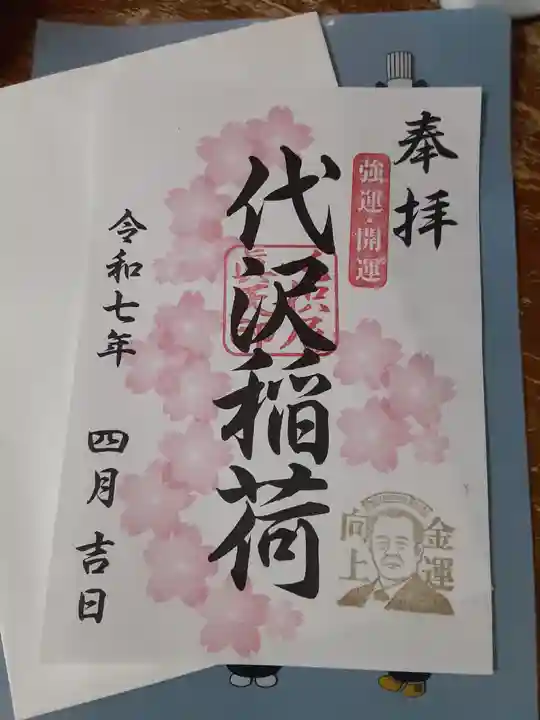 奉拝
強運・開運
代沢稲荷
金運
向上
令和七年 四月 吉日